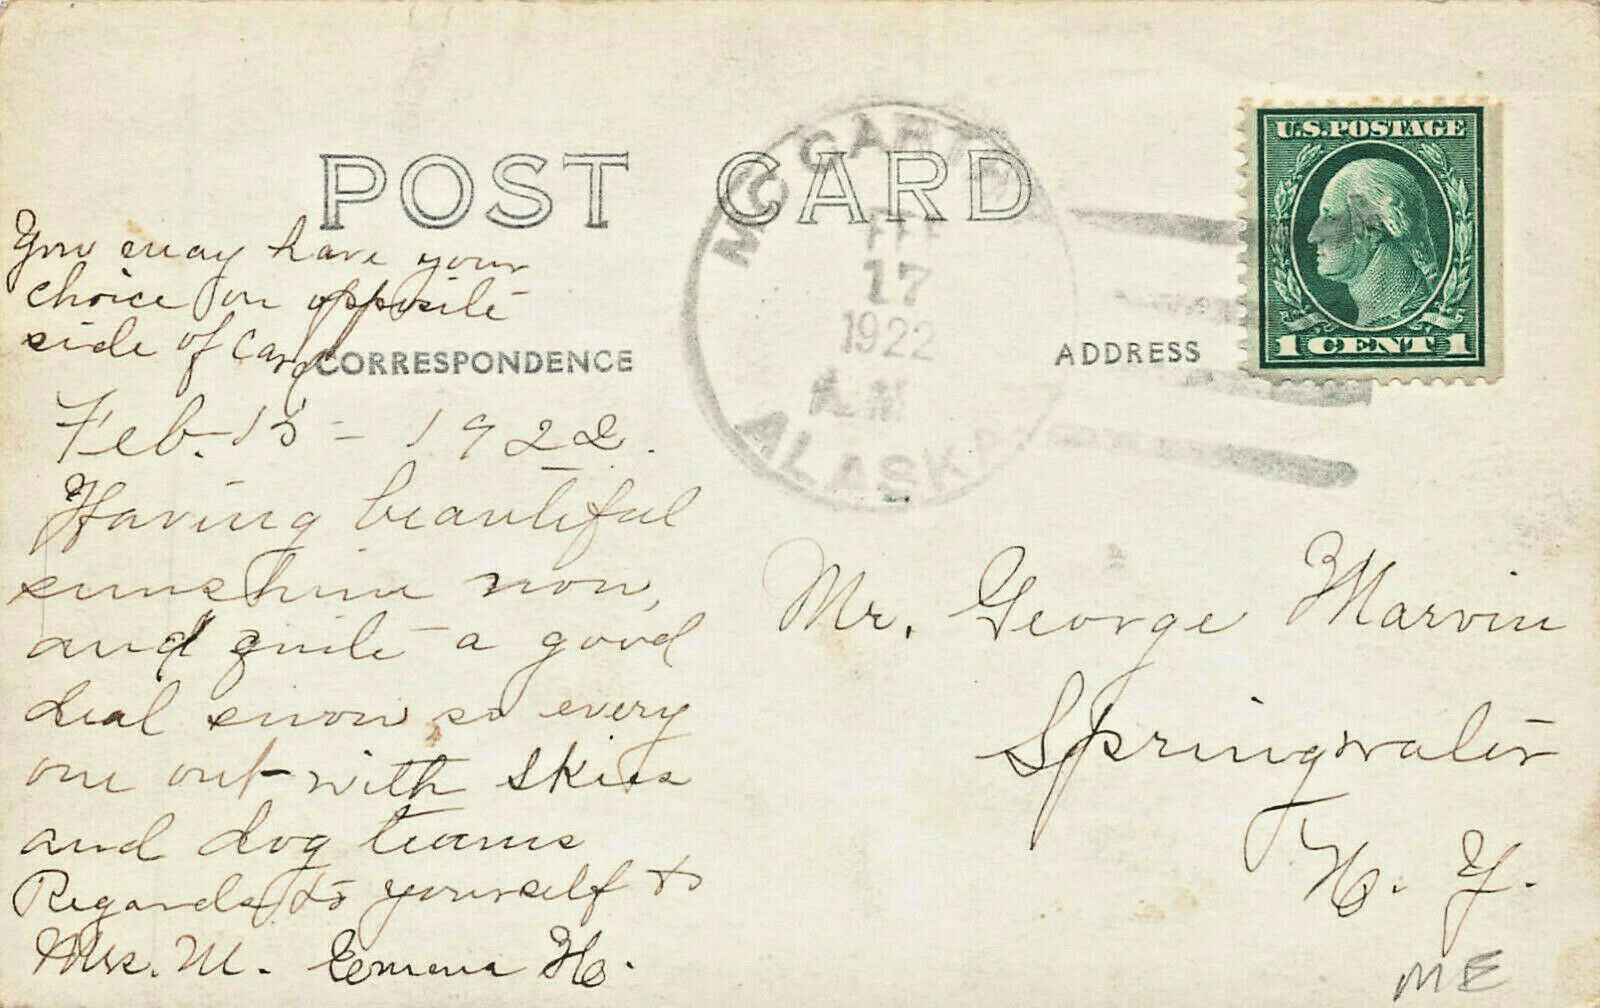 POST CARD
CORRESPONDENCE
ADDRESS
U.S. POSTAGE
1 CENT 1
McCARTHY
FEB
17
1922
A.M.
ALASKA
You may have your
choice on opposite
side of card
Feb. 15 - 1922.
Having beautiful
sunshine now,
and quite a good
deal snow so every
one out with skies
and dog teams
Regards to yourself &
Mrs. M. Emma H.
Mr. George Marvin
Springwater
N. Y.
ME